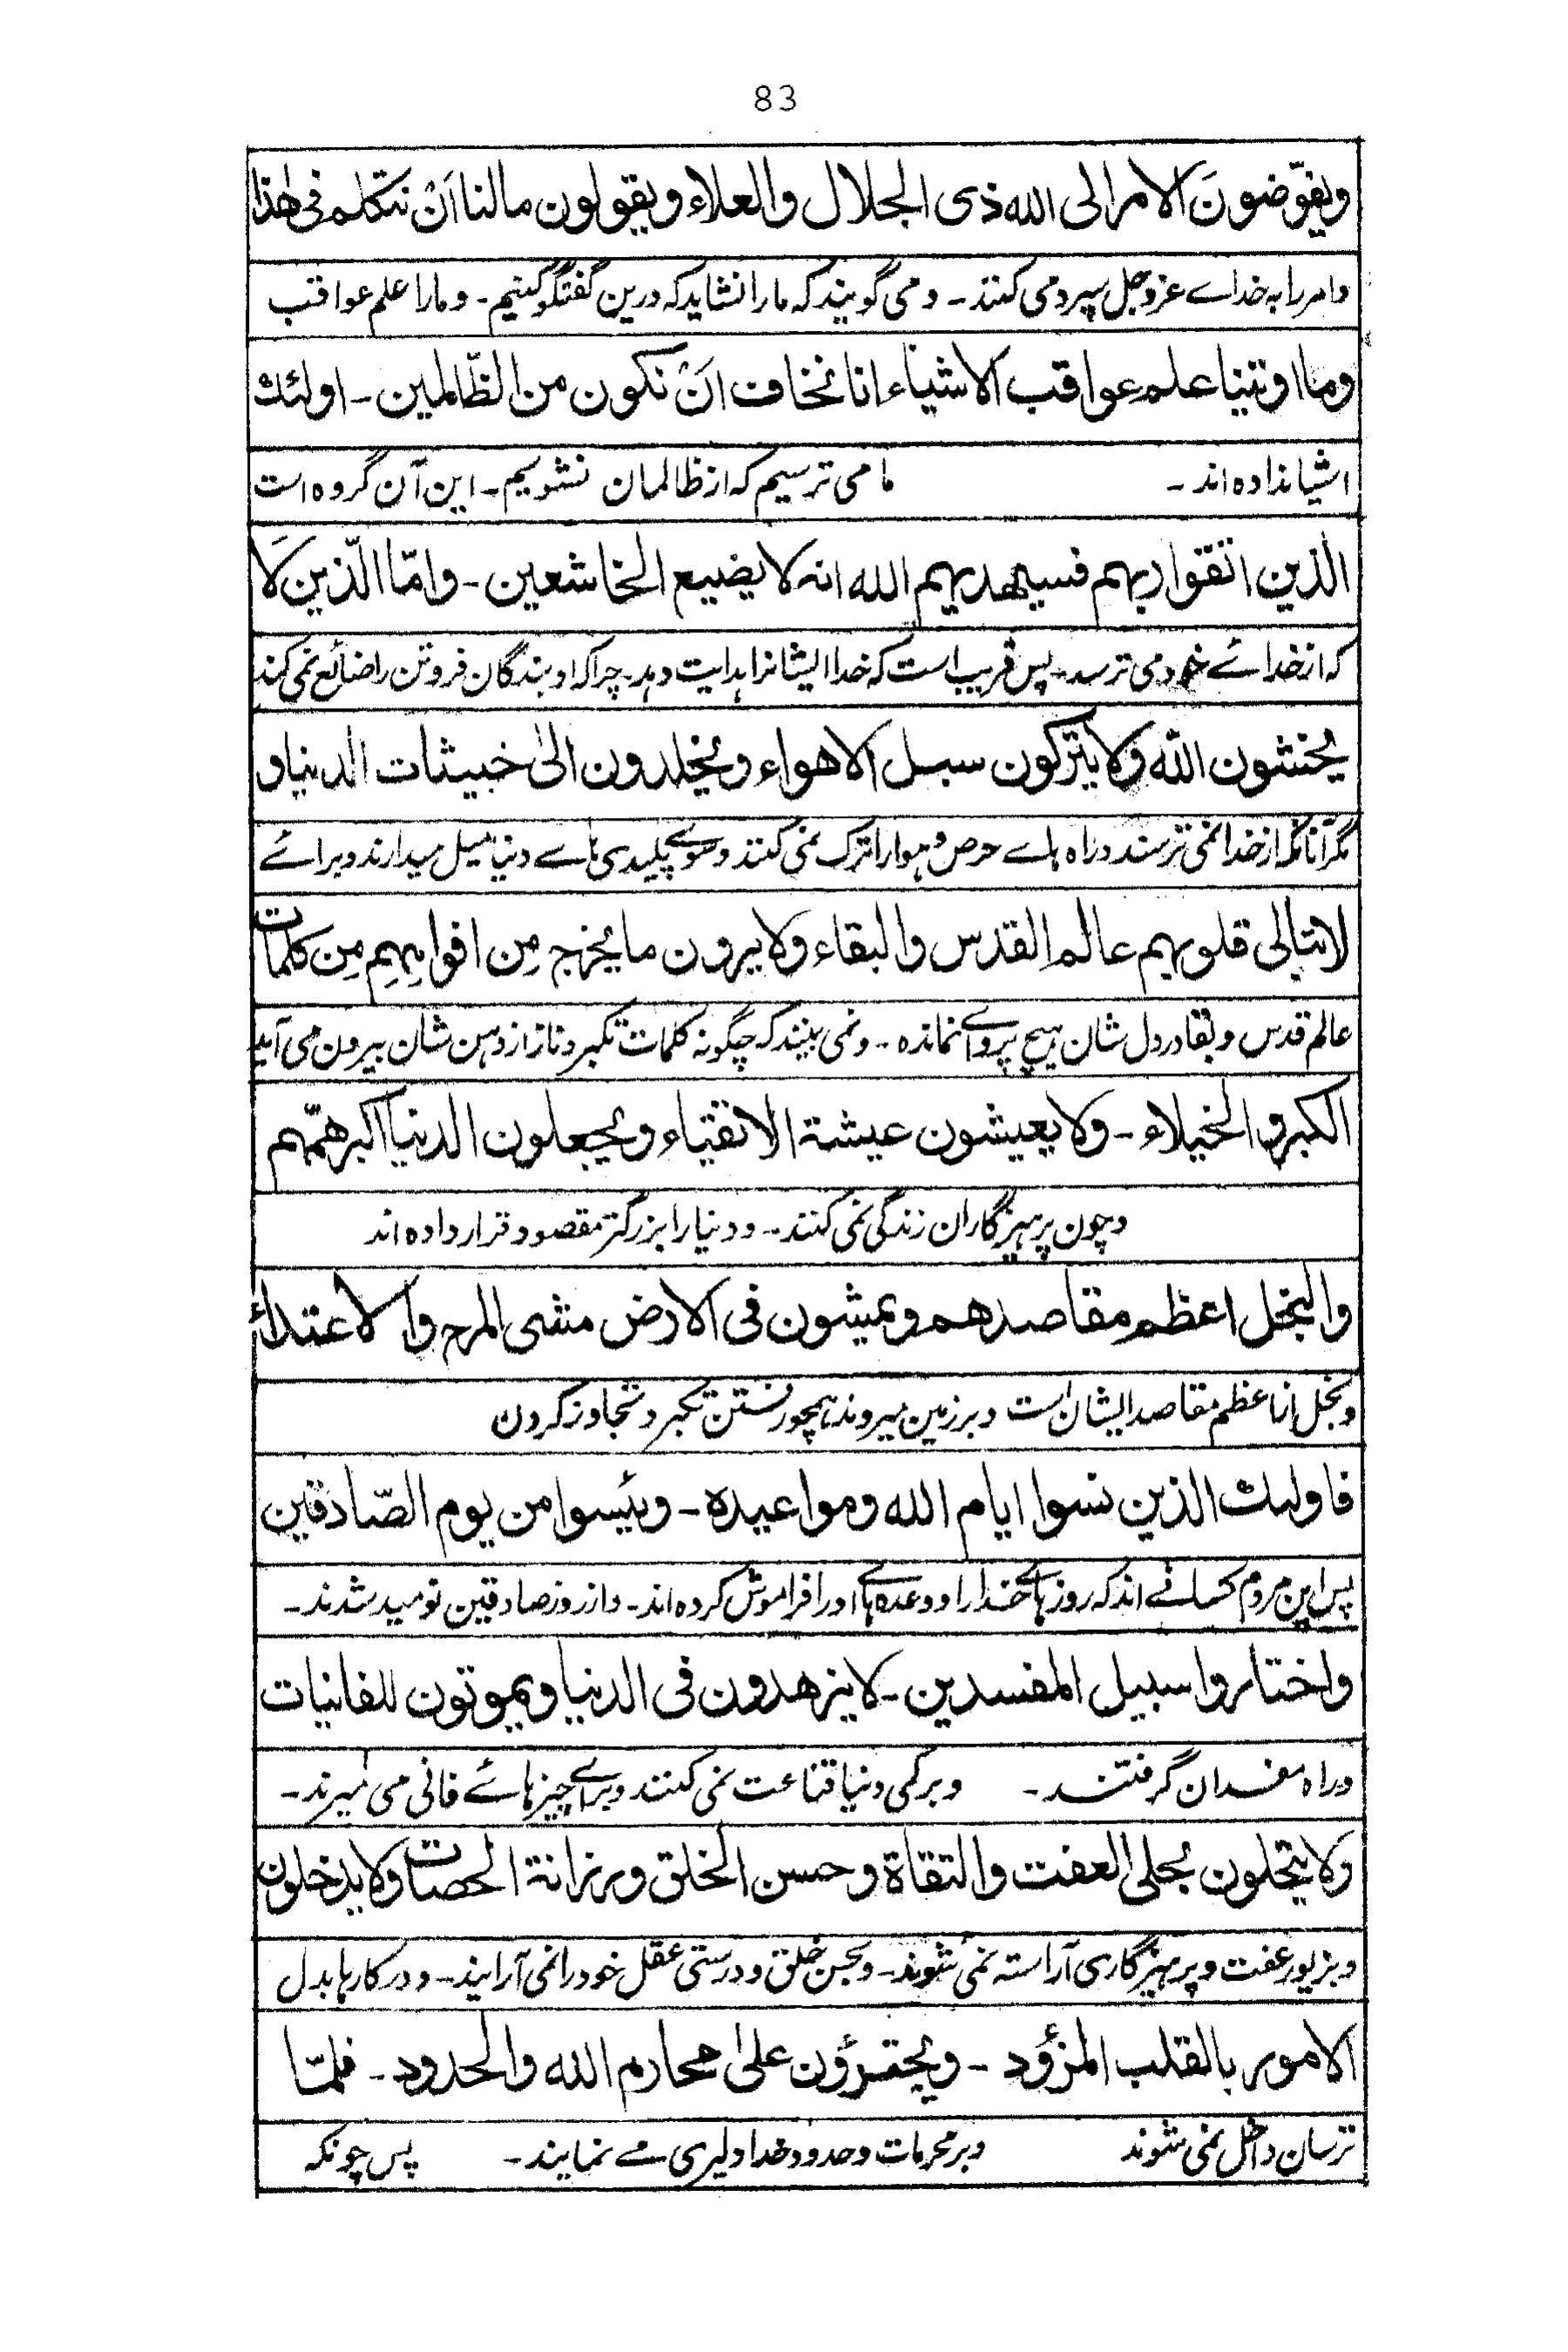 83
ويفوّضونَ الامر الى الله ذى الجلال والعلاء ويقولون مالنا اَنْ نتكلم فى هٰذا
و امر را به خدائے عزوجل سپرد می کنند ۔ و می گویند که ما را نشاید که درین گفتگو کنیم ۔ و ما را علم عواقب
وما اوتينا علم عواقب الاشياء انا نخاف اَنْ نكون من الظّالمين ۔ اولئك
اشیا نداده اند ۔ ما می ترسیم که از ظالمان نشویم ۔ این آن گروه است
الذين اتقوا ربهم فسيهديهم الله انه لا يضيع الخاشعين ۔ وامّا الّذين لَا
که از خدائے خود می ترسد ۔ پس قریب است که خدا ایشانرا هدایت دهد ۔ چرا که او بندگان فروتن را ضائع نمی کند
يخشون الله ولا يتركون سبل الاهواء ويخلدون الىٰ خبيثات الدنيا و
مگر آنانکه از خدا نمی ترسند و راه هائے حرص و هوا را ترک نمی کنند و سوئے پلیدی هائے دنیا میل میدارند و برائے
لا تبالى قلوبهم عالم القدس والبقاء ولا يرون ما يخرج مِن افواهِهِم مِن كلمات
عالم قدس و بقا در دل شان هیچ پروائے نمانده ۔ و نمی بینند که چگونه کلمات تکبر و ناز از دهن شان بیرون می آید
الكبر والخيلاء ۔ ولا يعيشون عيشة الاتقياء ويجعلون الدنيا اكبر همّهم
و چون پرهیزگاران زندگی نمی کنند ۔ و دنیا را بزرگتر مقصود قرار داده اند
والبخل اعظم مقاصدهم ويمشون فى الارض مشى المرح والاعتداء
و بخل از اعظم مقاصد ایشان است و بر زمین میروند همچو رفتن تکبر و تجاوز کردن
فاولئك الذين نسوا ايام الله ومواعيده ۔ ويئسوا من يوم الصّادقين
پس این مردم کسانے اند که روزهائے خدا را و وعده هائے او را فراموش کرده اند ۔ و از روز صادقین نومید شدند ۔
واختاروا سبيل المفسدين ۔ لا يزهدون فى الدنيا ويموتون للفانيات
و راه مفسدان گرفتند ۔ و بر کمی دنیا قناعت نمی کنند و برائے چیزهائے فانی می میرند ۔
ولا يتحلون بحلى العفت والتقاة وحسن الخلق ورزانة الحصات ولا يدخلون
و بزیور عفت و پرهیزگاری آراسته نمی شوند ۔ و بحسن خلق و درستی عقل خود را نمی آرایند ۔ و در کارها بدل
الامور بالقلب المزؤد ۔ ويجترؤن علىٰ محارم الله والحدود ۔ فلمّا
ترسان داخل نمی شوند و بر محرمات و حدود خدا دلیری مے نمایند ۔ پس چونکه